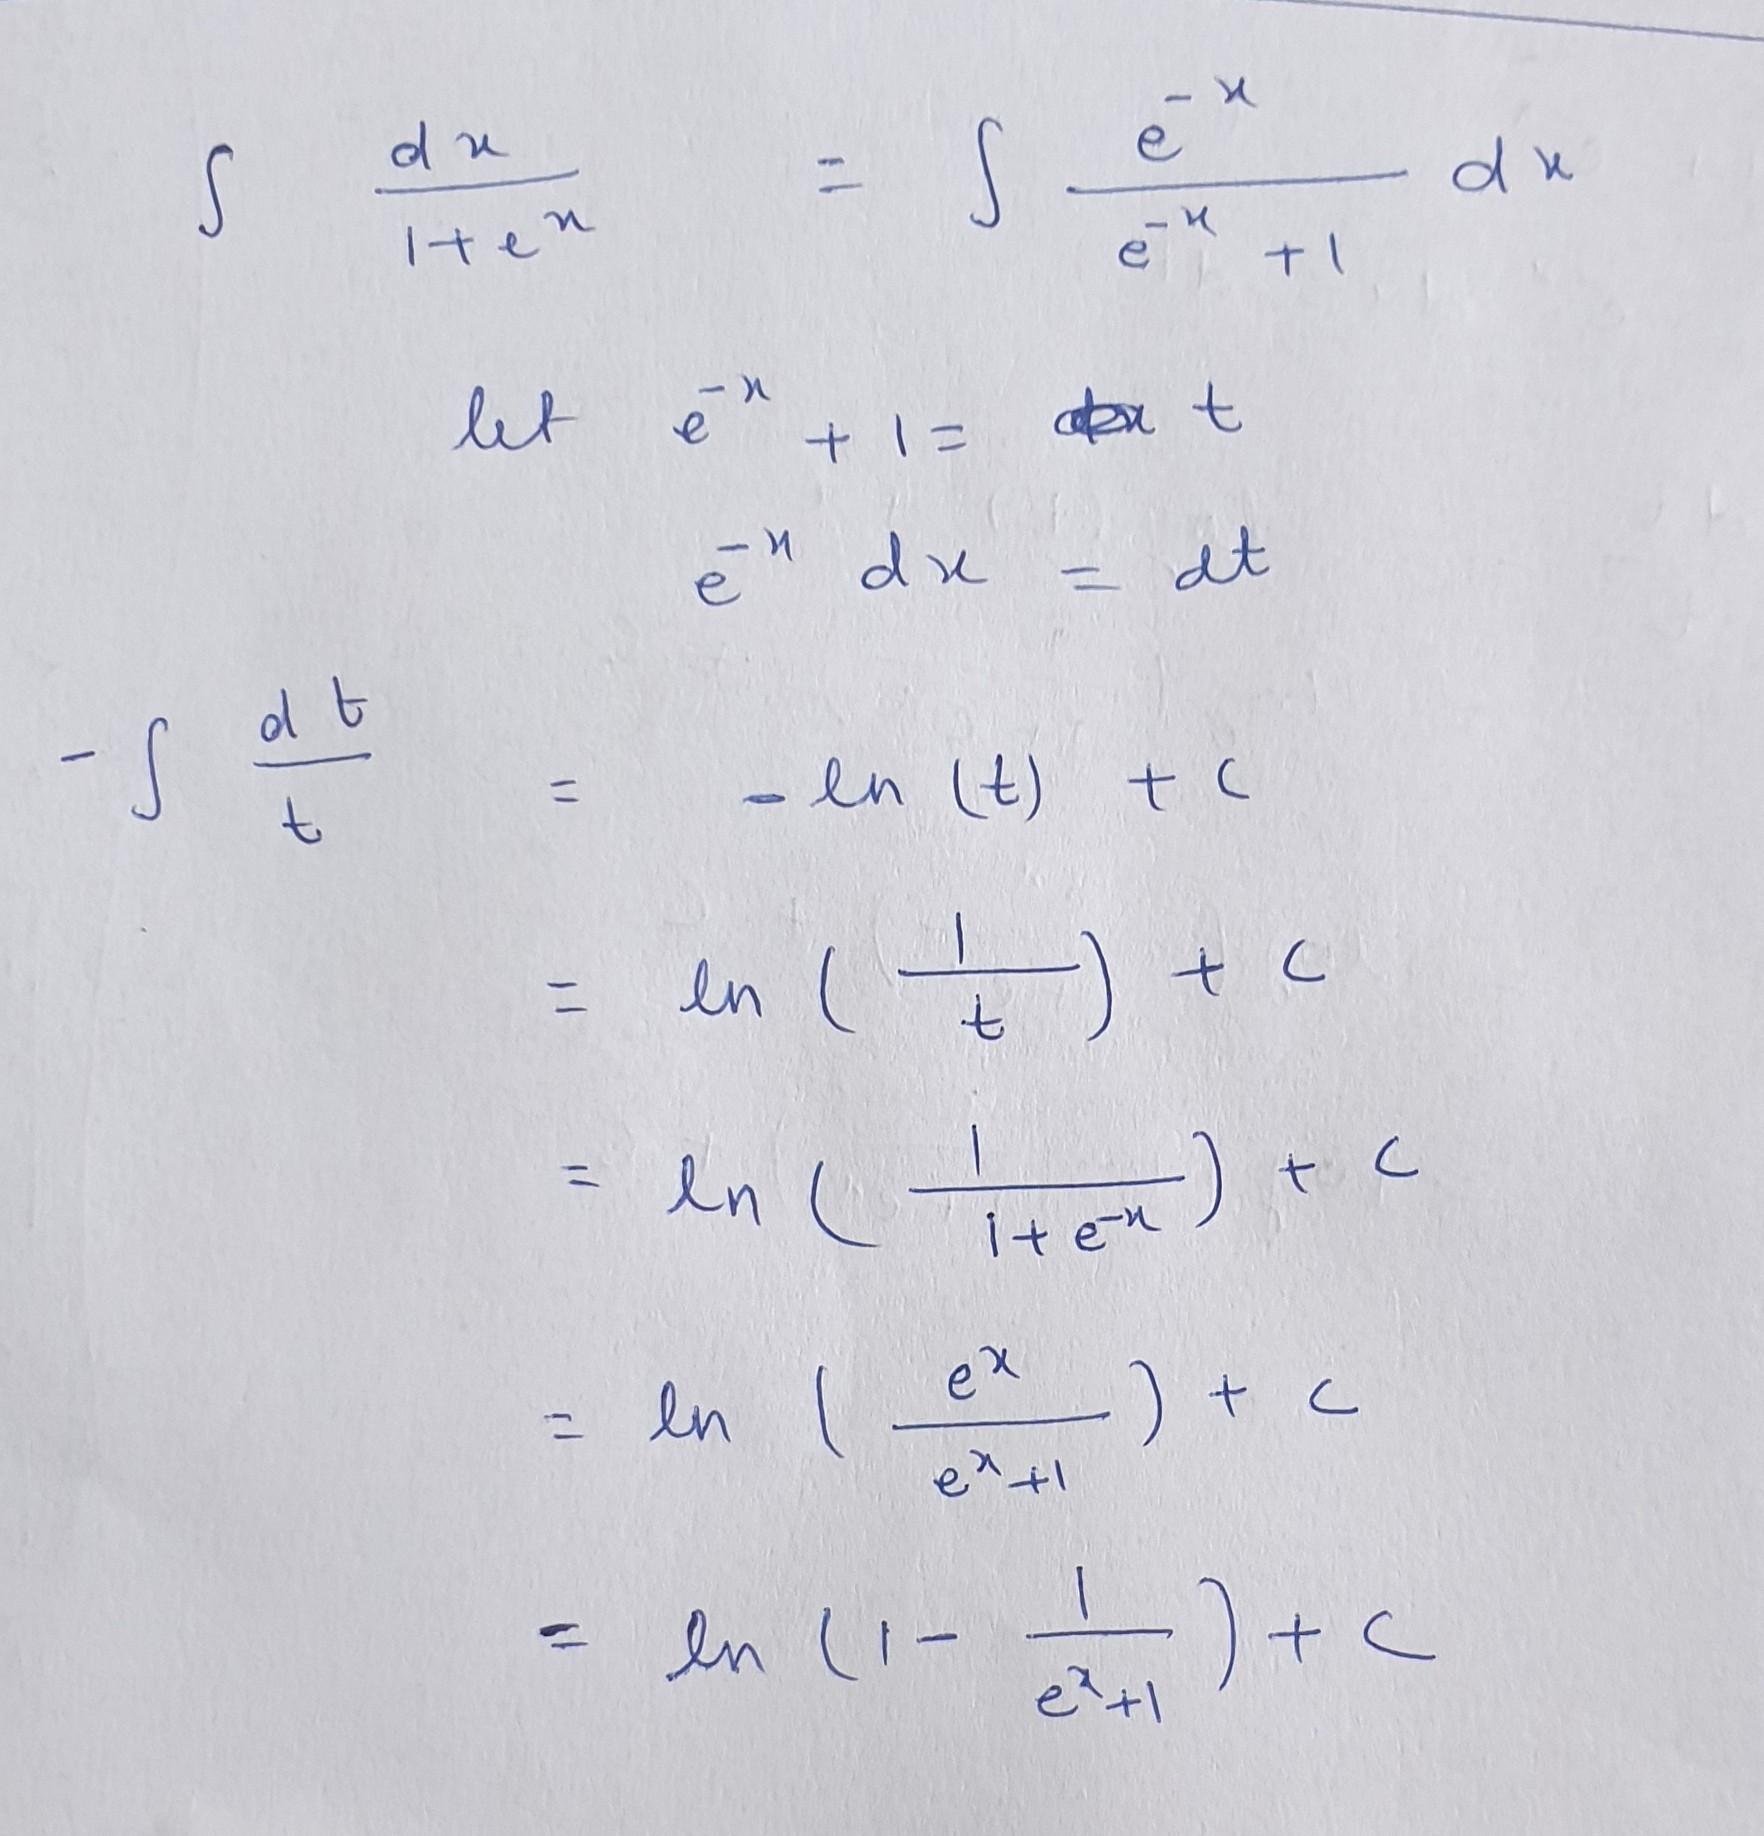 ∫ dx/(1+e^x) = ∫ e^-x/(e^-x +1) dx
let e^-x + 1 = t
e^-x dx = dt
-∫ dt/t = - ln (t) + c
= ln (1/t) + c
= ln (1/(1+e^-x)) + c
= ln (e^x/(e^x+1)) + c
= ln (1 - 1/(e^x+1)) + c